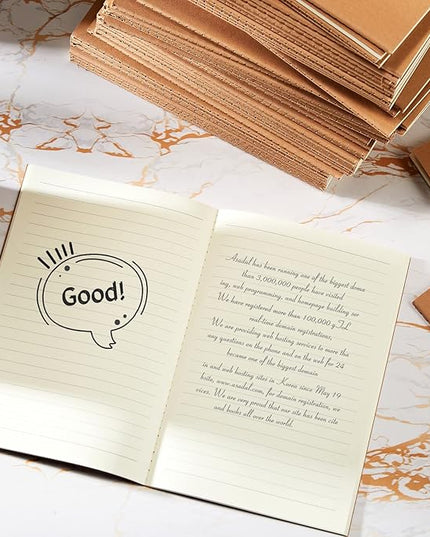 Good!
Asadal has been running one of the biggest domai
than 3,000,000 people have visited
ing, web programming, and homepage building ser
We have registered more than 100,000 g-Tel
real-time domain registrations,
We are providing web hosting services to more tha
any questions on the phone and on the web for 24
became one of the biggest domain
in and web hosting sites in Korea since May 19
bsite, www.asadal.com, for domain registration, we
vices. We are very proud that our site has been cite
and books all over the world.